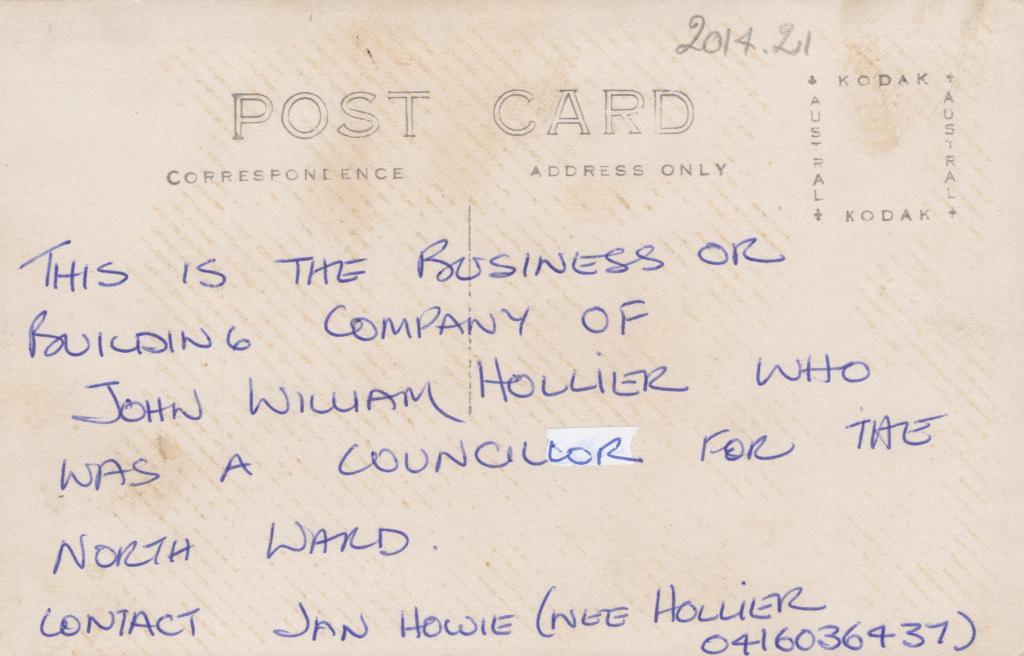 2014.21
POST CARD
CORRESPONDENCE
ADDRESS ONLY
KODAK
AUSTRAL
AUSTRAL
KODAK
THIS IS THE BUSINESS OR
BUILDING COMPANY OF
JOHN WILLIAM HOLLIER WHO
WAS A COUNCILLOR FOR THE
NORTH WARD.
CONTACT JAN HOWIE (NEE HOLLIER
0416036437)